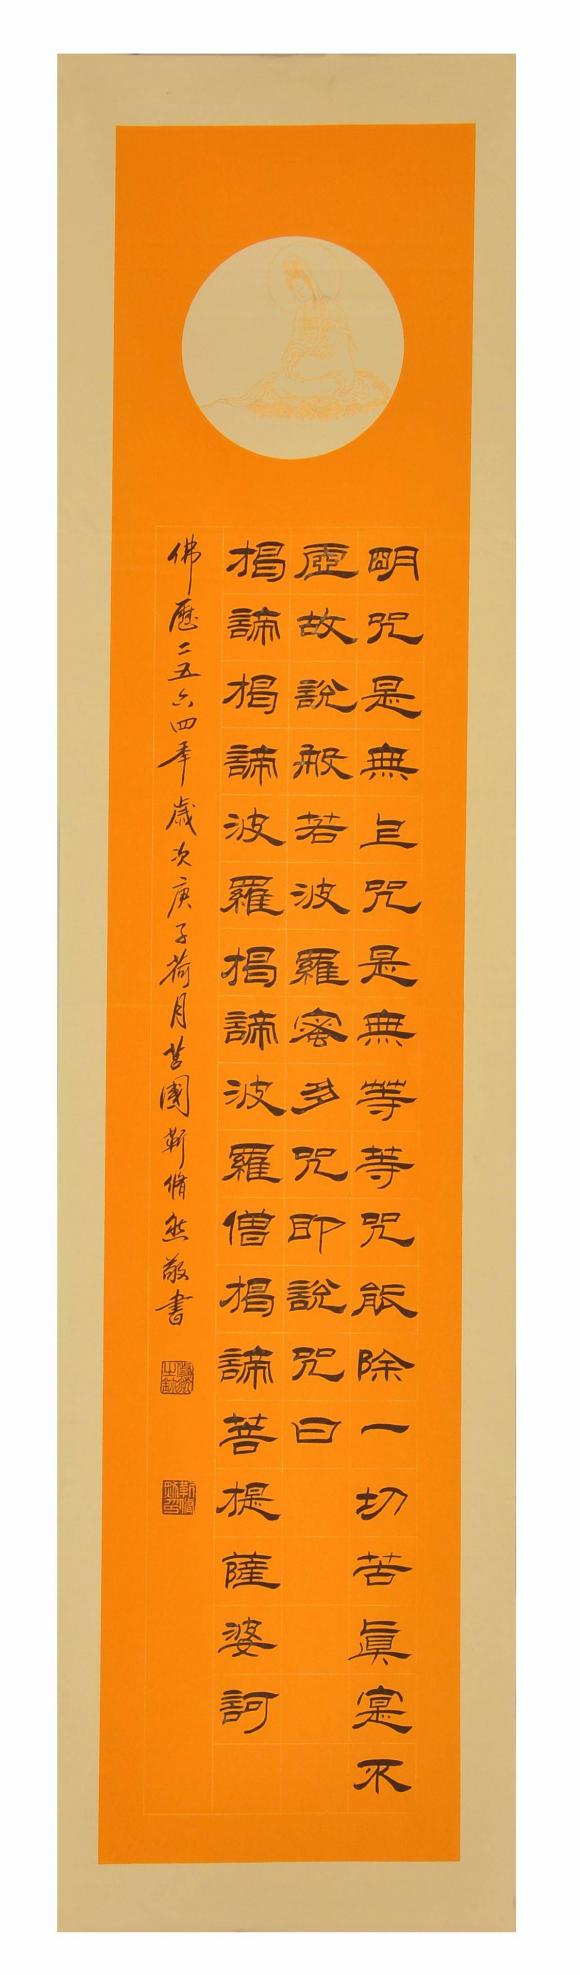 明咒是無上咒是無等等咒能除一切苦真寔不
虛故說般若波羅蜜多咒即說咒曰
揭諦揭諦波羅揭諦波羅僧揭諦菩提薩婆訶
佛歷二五六四年歲次庚子荷月莒國靳脩然敬書